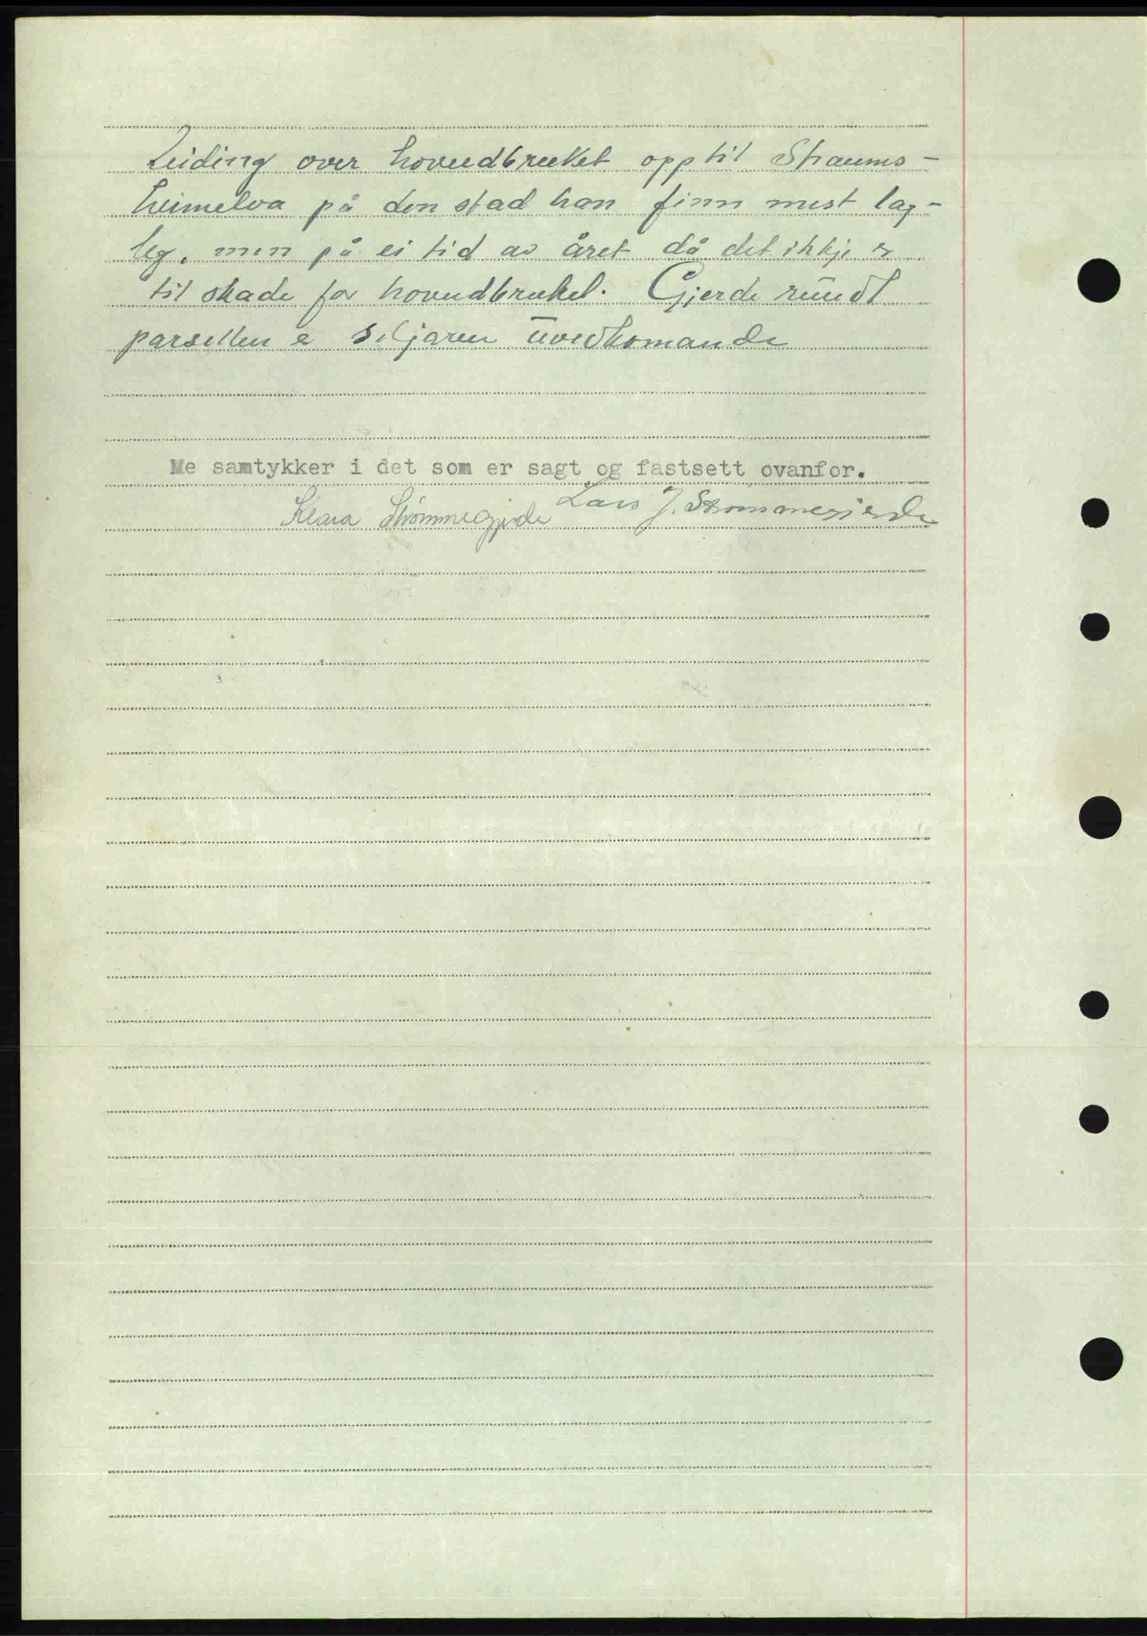 Leiding over hovudbruket opp til Straums-
heimelva på den stad han finn mest lag-
leg, men på ei tid av året då det ikkje er
til skade for hovudbruket. Gjerde rundt
parsellen e seljaren uvedkomande
Me samtykker i det som er sagt og fastsett ovanfor.
Klara Strømmegjerde Lars J. Strømmegjerde